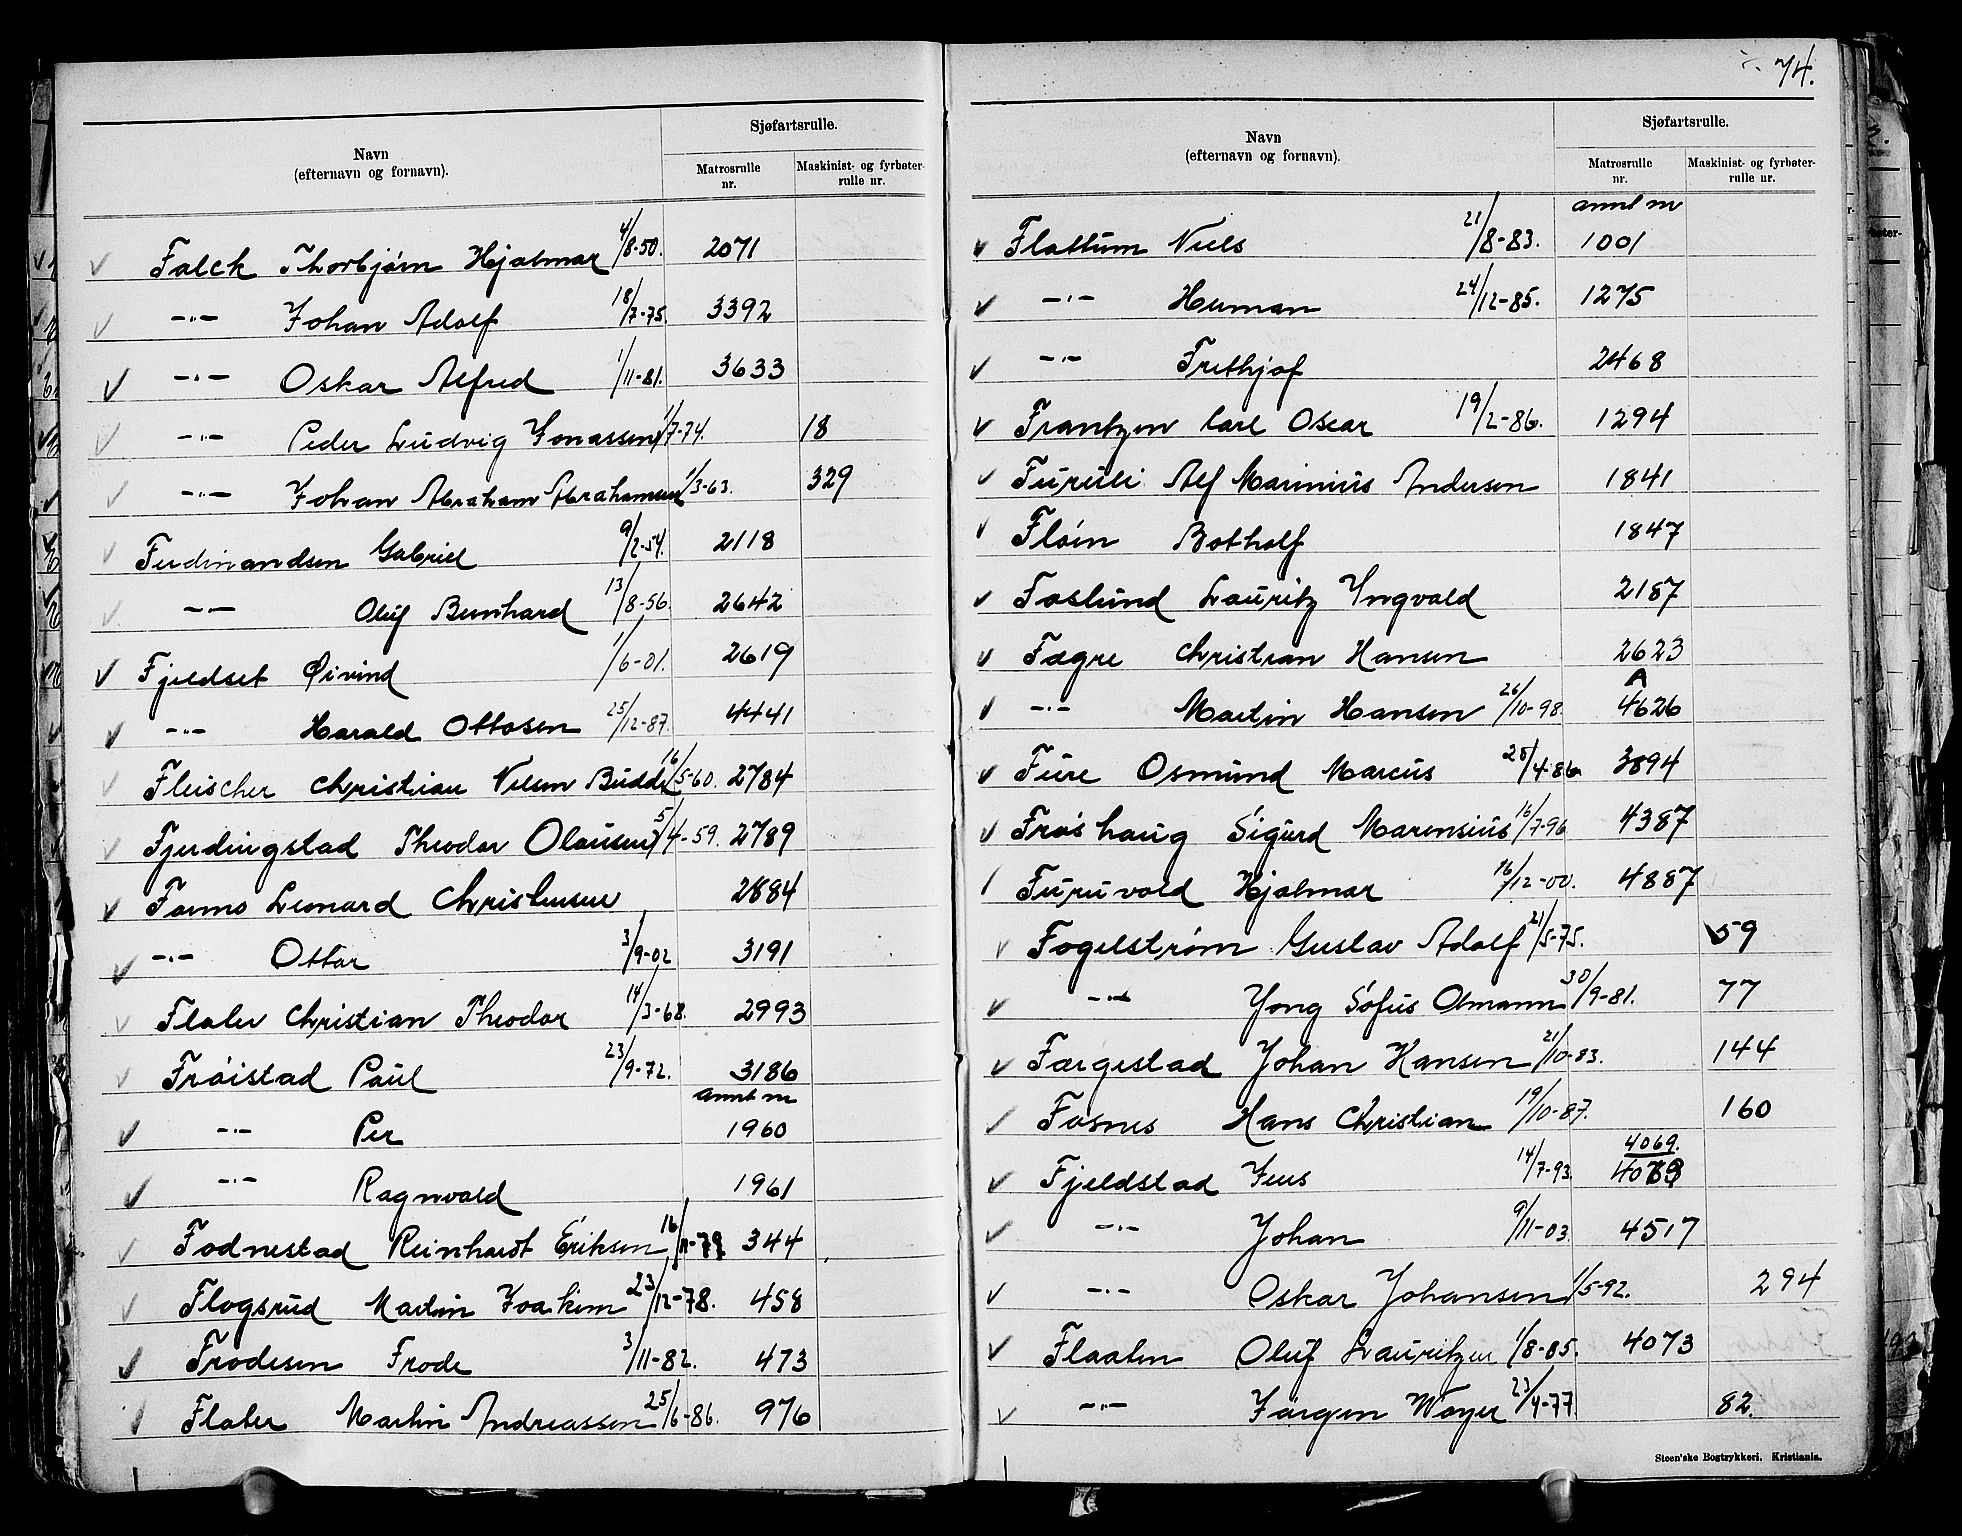 Navn
(efternavn og fornavn).
Sjøfartsrulle.
Matrosrulle nr.
Maskinist- og fyrbøter-rulle nr.
Falck Thorbjørn Hjalmar 4/8-50. 2071
-"- Johan Adolf 18/7-75. 3392
-"- Oskar Alfred 1/11-81. 3633
-"- Peder Ludvig Jonassen 1/7-74. 18
-"- Johan Abraham Abrahamsen 1/3-63. 329
Ferdinandsen Gabriel 9/2-54. 2118
-"- Oluf Bernhard 13/8-56. 2642
Fjeldset Øivind 1/6-01. 2619
-"- Harald Ottosen 25/12-87. 4441
Fleischer Christian Nilsen Budde 16/5-60. 2784
Fjerdingstad Theodor Olausen 5/4-59. 2789
Fomo Leonard Christensen 2884
-"- Ottar 3/9-02 3191
Flater Christian Theodor 14/3-68. 2993
Frøistad Paul 23/9-72. 3186
annt nr
-"- Per 1960
-"- Ragnvald 1961
Fodnestad Reinhardt Eriksen 16/11-79 344
Flogsrud Martin Joakim 23/12-78. 458
Frodesen Frode 3/11-82. 473
Flater Martin Andreassen 25/6-86. 976
74.
Navn
(efternavn og fornavn).
Sjøfartsrulle.
Matrosrulle nr.
Maskinist- og fyrbøter-rulle nr.
annt nr
Flattum Niels 21/8-83. 1001
-"- Herman 24/12-85. 1275
-"- Frithjof 2468
Frantzen Carl Oscar 19/2-86. 1294
Furuli Alf Marinius Andersen 1841
Fløin Botholf 1847
Foslund Lauritz Yngvald 2187
Fægre Christian Hansen 2623
A
-"- Martin Hansen 26/10-98. 4626
Fure Osmund Marcus 28/4-86 3894
Frøshaug Sigurd Marensius 16/7-96 4387
Furuvald Hjalmar 16/12-00. 4887
Fogelstrøm Gustav Adolf 21/5-75. 59
-"- Yong Sofus Omann 30/9-81. 77
Færgestad Johan Hansen 21/10-83. 144
Fosnes Hans Christian 19/10-87. 160
4069.
Fjeldstad Jens 14/7-93.
-"- Johan 9/11-03. 4517
-"- Oskar Johansen 1/5-92. 294
Flaaten Oluf Lauritzen 1/8-85. 4073
-"- Jørgen Woyer 23/4-77. 82.
Steen'ske Bogtrykkeri. Kristiania.